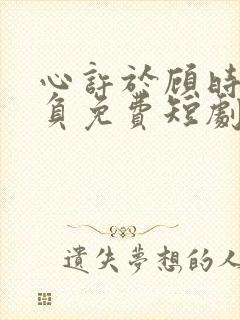 心許於顧時
負免費短劇
遺失夢想的人